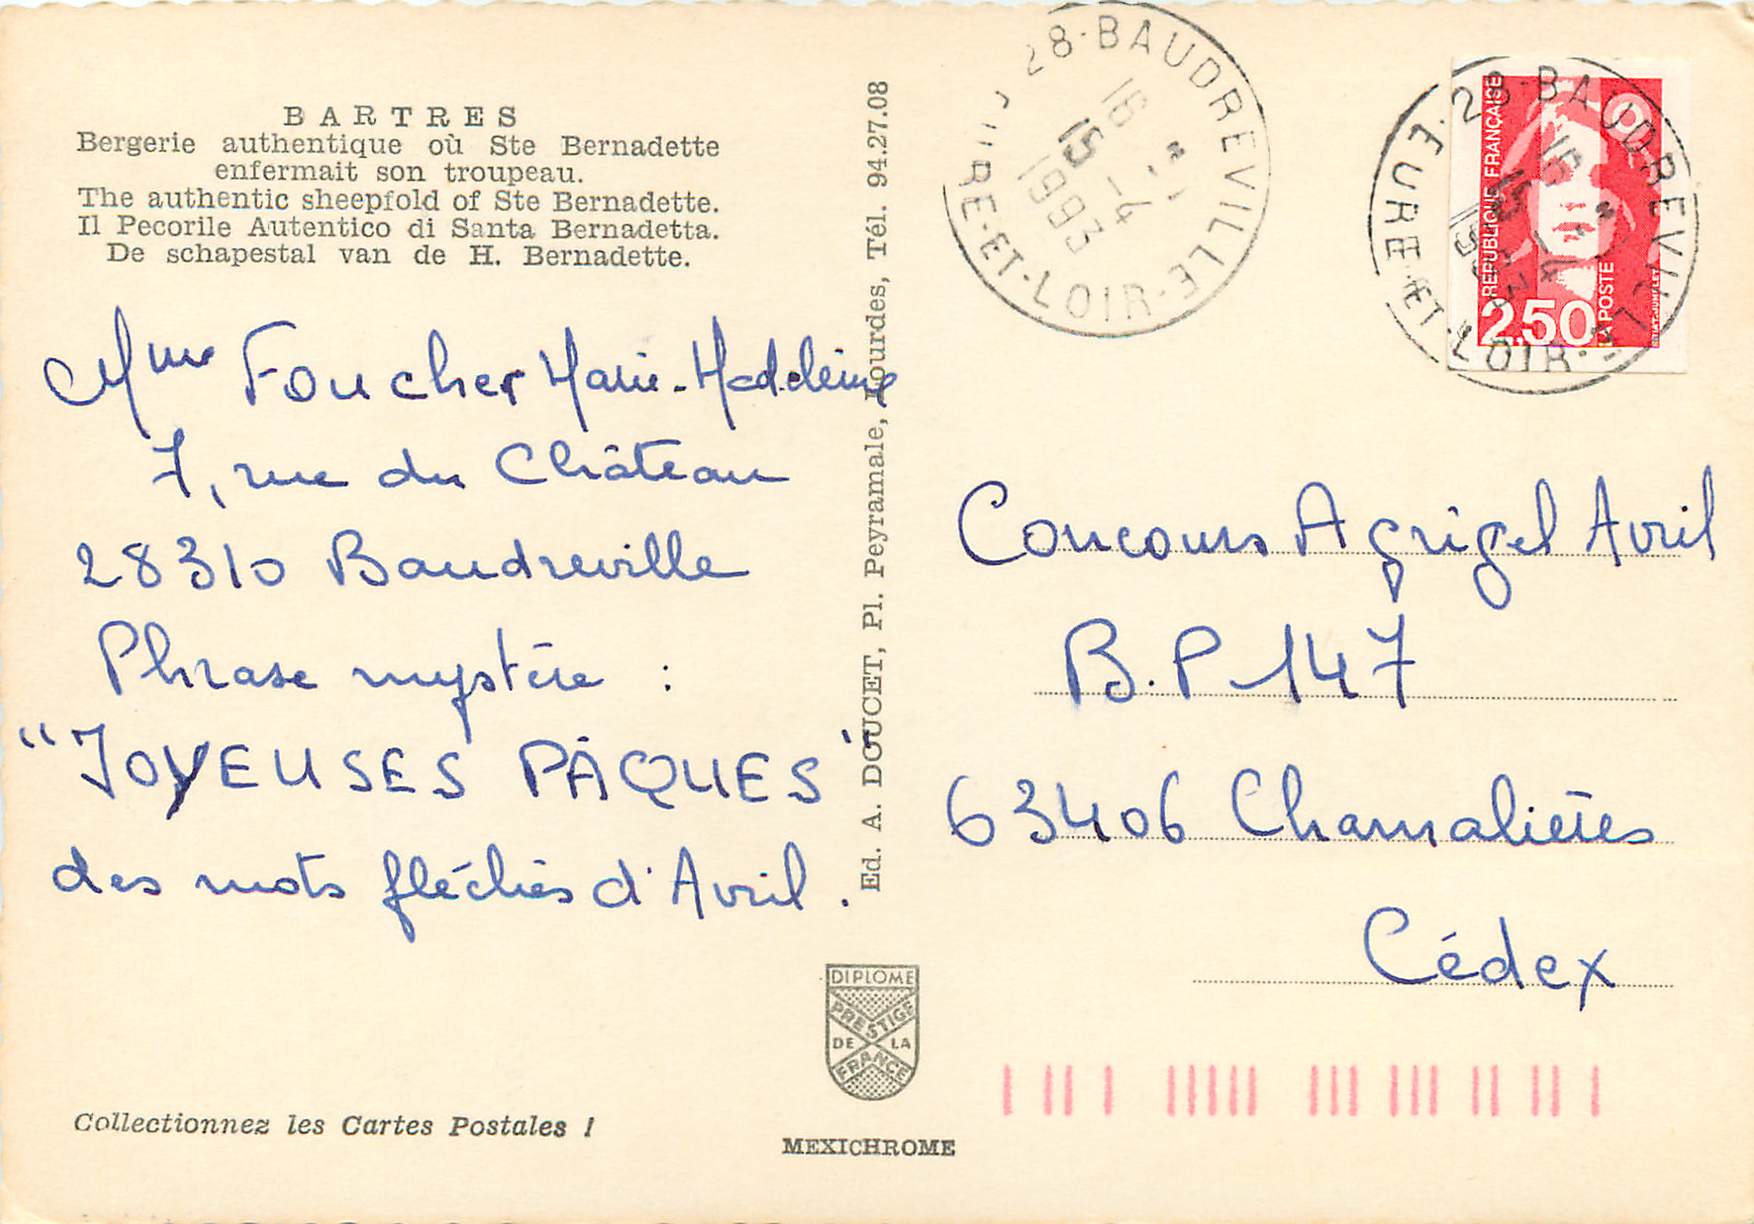 BARTRES
Bergerie authentique où Ste Bernadette
enfermait son troupeau.
The authentic sheepfold of Ste Bernadette.
Il Pecorile Autentico di Santa Bernadetta.
De schapestal van de H. Bernadette.
Mme Foucher Marie-Madeleine
7, rue du Château
28310 Baudreville
Phrase mystère :
"JOYEUSES PÂQUES"
des mots fléchés d'Avril.
Collectionnez les Cartes Postales !
Ed. A. DOUCET, Pl. Peyramale, Lourdes, Tél. 94.27.08
DIPLOME
PRESTIGE
DE LA
FRANCE
MEXICHROME
28-BAUDREVILLE
16 H
15 -4
1993
EURE-ET-LOIR
28-BAUDREVILLE
16 H
15 -4
1993
EURE-ET-LOIR
RÉPUBLIQUE FRANÇAISE
2,50
LA POSTE
Concours Agrigel Avril
B.P 147
63406 Chamalières
Cédex